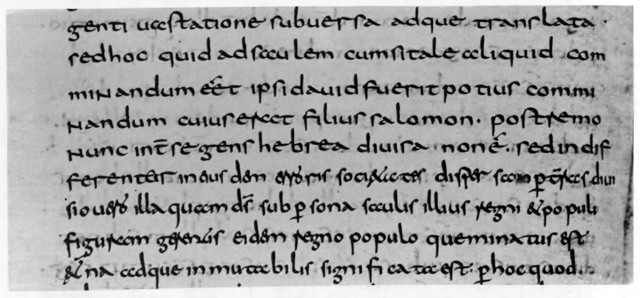 genti uastatione subuersa adque translata.
sed hoc quid ad saulem cum si tale aliquid com
minandum eet ipsi dauid fuerit potius commi
nandum cuius erat filius salomon. postremo
nunc int se gens hebrea diuisa non e. sed indif
ferenter in eius dem erroris societates dispersa per terras diui
sio uero illa quam ds sub persona saulis illius regni & populi
figuram gerentis eidem regno populo que minatus est
&erna adque inmutabilis significata est. p hoc quod.